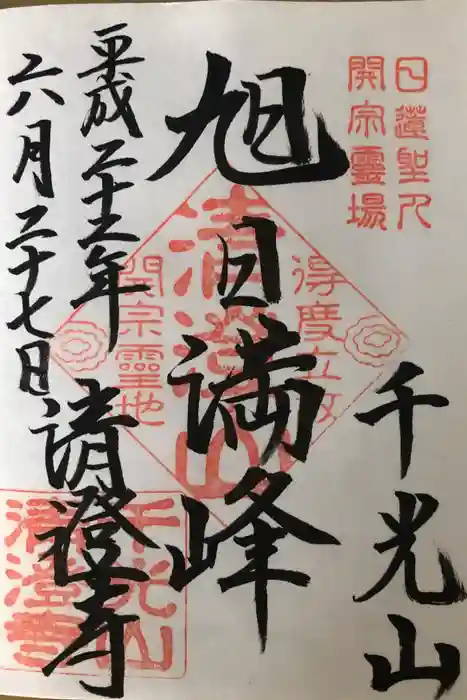 日蓮聖人
開宗靈場
千光山
旭日満峰
得度立教
清澄山
開宗靈地
平成二十五年
六月二十七日
清澄寺
千光山
清澄寺